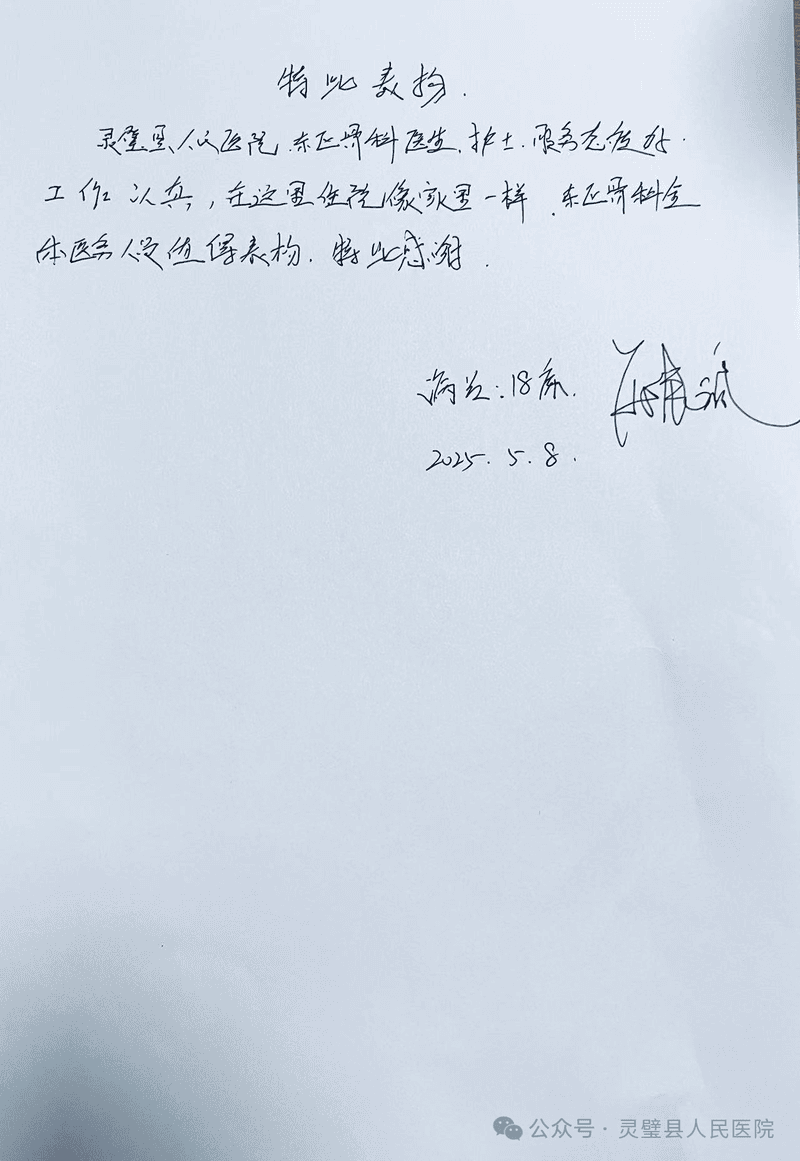 特此表扬.
灵璧县人民医院.东区骨科医生.护士.服务态度好.
工作认真,在这里住院像家里一样.东区骨科全
体医务人员值得表扬.特此感谢.
病员:18床.
2025.5.8.
公众号·灵璧县人民医院